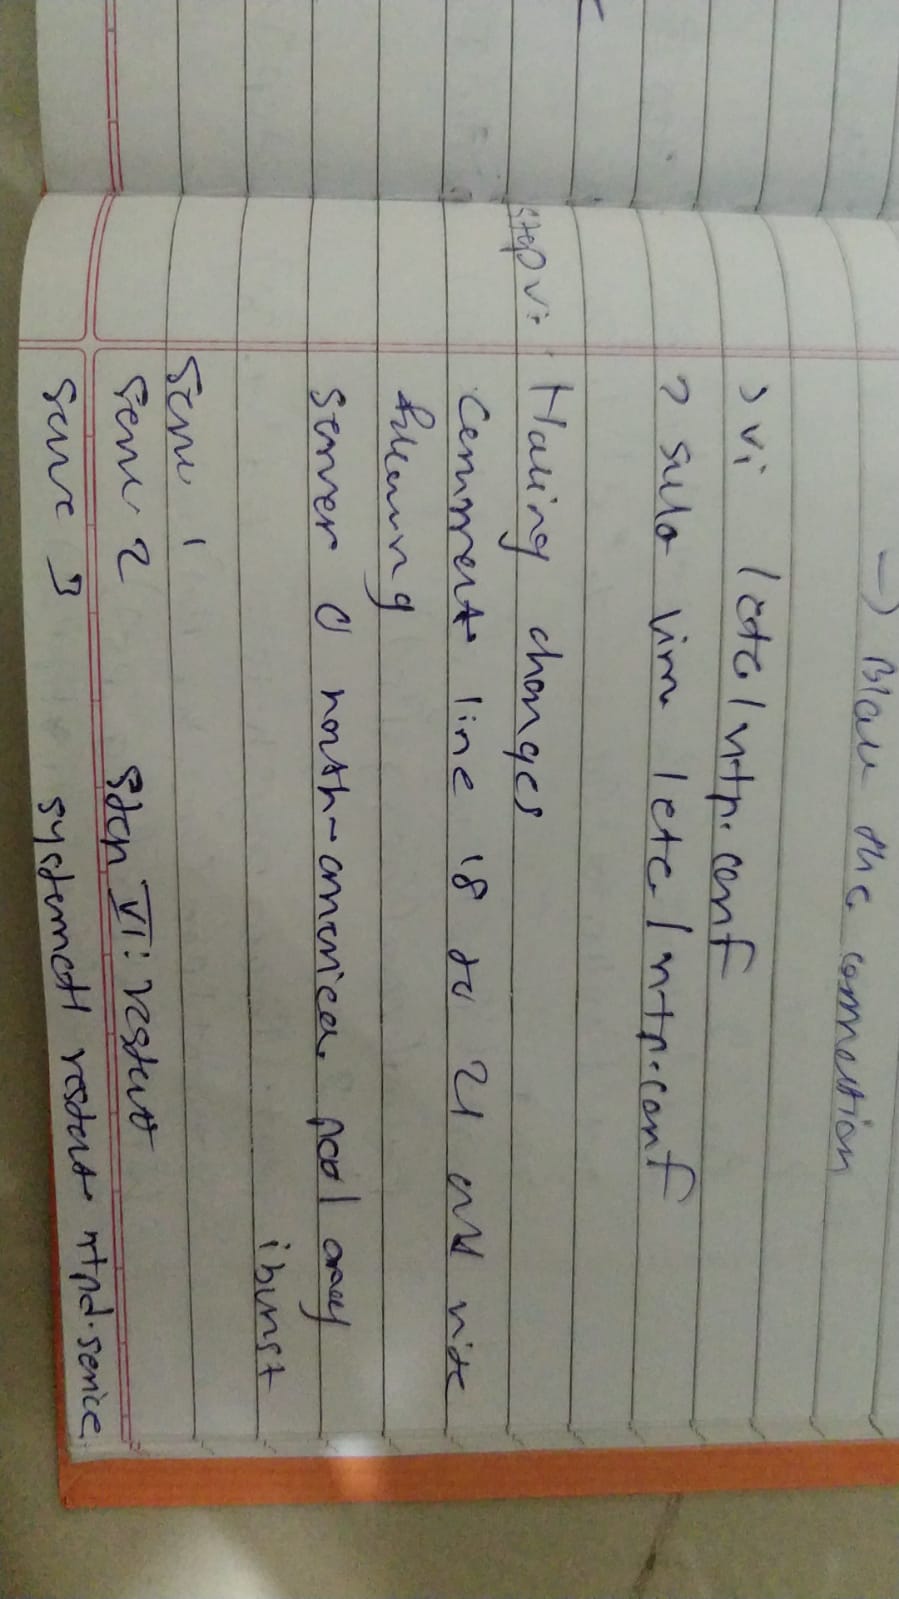 → Blau the connection
> vi /etc/ntp.conf
> sudo vim /etc/ntp.conf
Step V: Making changes
comment line 18 to 21 and write
following
server 0 north-america. pool org
iburst
Serve 1
Serve 2
Step VI: restart
Serve 3
systemctl restart ntpd.service